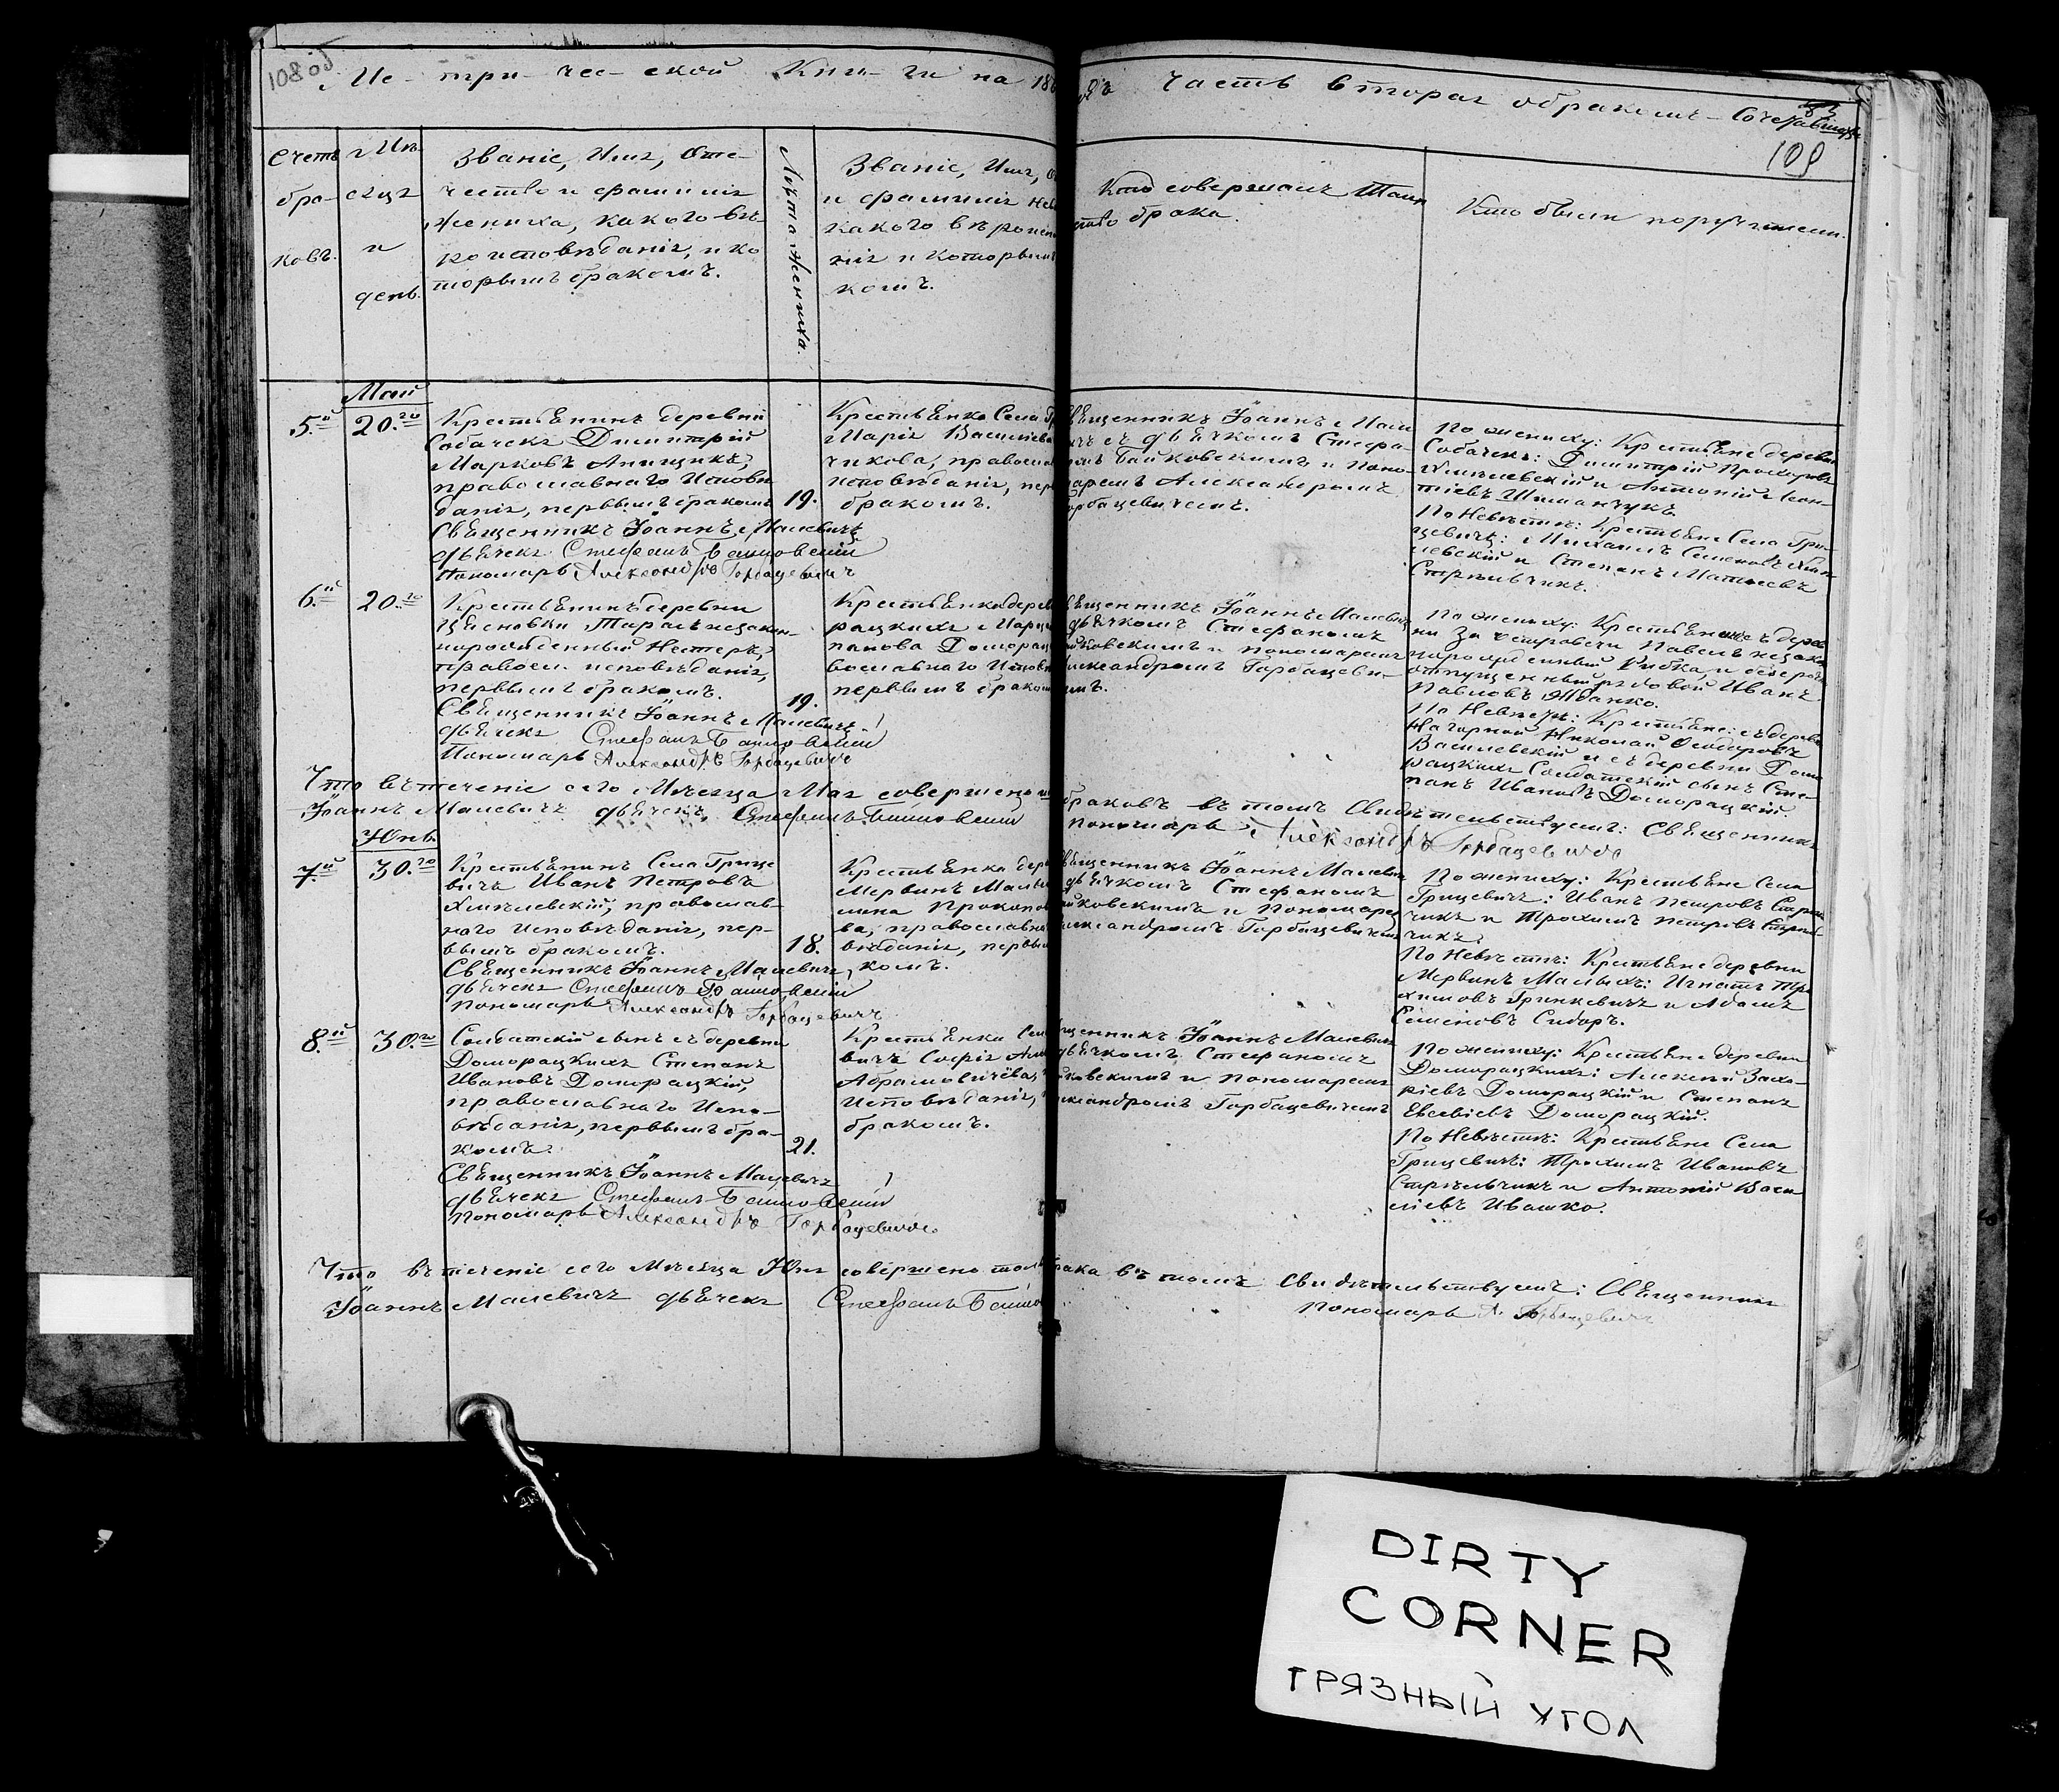 108 об
Ме- три- чес- ской Кни- ги на 18
Часть вторая о бракомъ- Сочетавшихся
109
Счетъ бра- ковъ.
Мѣ- сяцъ и день.
Званіе, Имя, Оте-
чество и фамилія
жениха, какого вѣ-
роисповѣданія, и ко
торымъ бракомъ.
Лѣта жениха.
Званіе, Имя,
и фамилія нев
какого вѣроисп
нія и которымъ
комъ.
Кто совершалъ Таин
ство брака.
Кто были поручители.
Май
5.й
20.го
Крестьянинъ деревни
Собачекъ Димитрій
Марковъ
православнаго Исповѣ
данія, первымъ бракомъ
19.
Священникъ Іоаннъ Малевичъ
дьячекъ Стефанъ
Пономарь Александръ Горбацевичъ
Крестьянка Села Гр
Марія Василіева
чикова, правосла
исповѣданія, пер
бракомъ.
Священникъ Іоаннъ Мале
чъ съ дьячкомъ Стефа-
номъ Байковскимъ и Поно-
маремъ Александромъ
Горбацевичемъ.
По жениху: Крестьяне деревни
Собачекъ: Димитрій Прохоровъ
Хмѣлевскій и Антоній Леон-
тіевъ Шиманчукъ.
По Невѣстѣ: Крестьяне Села Гри-
цевичъ: Михаилъ Семеновъ Хмѣ
левскій и Степанъ Матѳеевъ
Стрѣльчикъ.
6.й
20.го
Крестьянинъ деревни
Тарасъ незакон-
норожденный Нестеръ,
правосл. исповѣданія,
первымъ бракомъ.
19.
Священникъ Іоаннъ Малевичъ
дьячекъ Стефанъ
Пономарь Александръ Горбацевичъ
Крестьянка дерев
рацкихъ Марія
панова Доморац
вославнаго Исповѣ
первымъ бракомъ
Священникъ Іоаннъ Малевичъ
дьячкомъ Стефаномъ
Байковскимъ и пономаремъ
Александромъ Горбацеви-
чемъ.
По жениху: Крестьянинъ съ дерев
ни Павелъ незакон
норожденный Рибка, и безсрочно
отпущенный рядовой Иванъ
Павловъ Жданко.
По Невѣстѣ: Крестьяне: съ деревни
Нагорной Николай Ѳеодоровъ
Василевскій и съ деревни Домо
рацкихъ Солдатскій сынъ Сте-
панъ Ивановъ Доморацкій.
Что въ теченіе сего Мѣсяца Мая совершено
браковъ въ томъ Свидѣтельствуемъ: Священникъ
Іоаннъ Малевичъ дьячекъ Стефанъ
пономарь Александръ Горбацевичъ
Юнь
7.й
30.го
Крестьянинъ Села Грице
вичъ Иванъ Петровъ
Хмѣлевскій, православ-
наго Исповѣданія, пер-
вымъ бракомъ.
18.
Священникъ Іоаннъ Малевичъ,
дьячекъ Стефанъ
пономарь Александръ Горбацевичъ
Крестьянка дере
Мервинъ Малы
лина Прокопов
ва, православна
вѣданія, первы
комъ.
Священникъ Іоаннъ Малевичъ
дьячкомъ Стефаномъ
Байковскимъ и Пономаремъ
Александромъ Горбацевичемъ
По жениху: Крестьяне Села
Грицевичъ: Иванъ Петровъ Стрѣль
чикъ и Трохимъ Петровъ Стрѣль-
чикъ.
По Невѣстѣ: Крестьяне деревни
Мервинъ Малыхъ: Игнатъ Тро
химовъ Гринкевичъ и Адамъ
Семеновъ Сидоръ.
8.й
30.го
Солдатскій сынъ съ деревни
Доморацкихъ Степанъ
Ивановъ Доморацкій,
православнаго Испо-
вѣданія, первымъ бра-
комъ.
21.
Священникъ Іоаннъ Малевичъ
дьячекъ Стефанъ
пономарь Александръ Горбацевичъ
Крестьянка Села
вичъ Софія
Абрамовичева,
Исповѣданія,
бракомъ.
Священникъ Іоаннъ Малевичъ
дьячкомъ Стефаномъ
Байковскимъ и пономаремъ
Александромъ Горбацевичемъ
По жениху: Крестьяне деревни
Доморацкихъ: Алексѣй Заха-
ріевъ Доморацкій и Степанъ
Евсевіевъ Доморацкій.
По Невѣстѣ: Крестьяне Села
Грицевичъ: Трохимъ Ивановъ
Стрѣльчикъ и Антоній Васи
ліевъ Ивашко.
Что въ теченіе сего Мѣсяца Юня совершено
брака въ томъ Свидѣтельствуемъ: Священникъ
Іоаннъ Малевичъ дьячекъ Стефанъ
пономарь А Горбацевичъ
DIRTY
CORNER
ГРЯЗНЫЙ УГОЛ